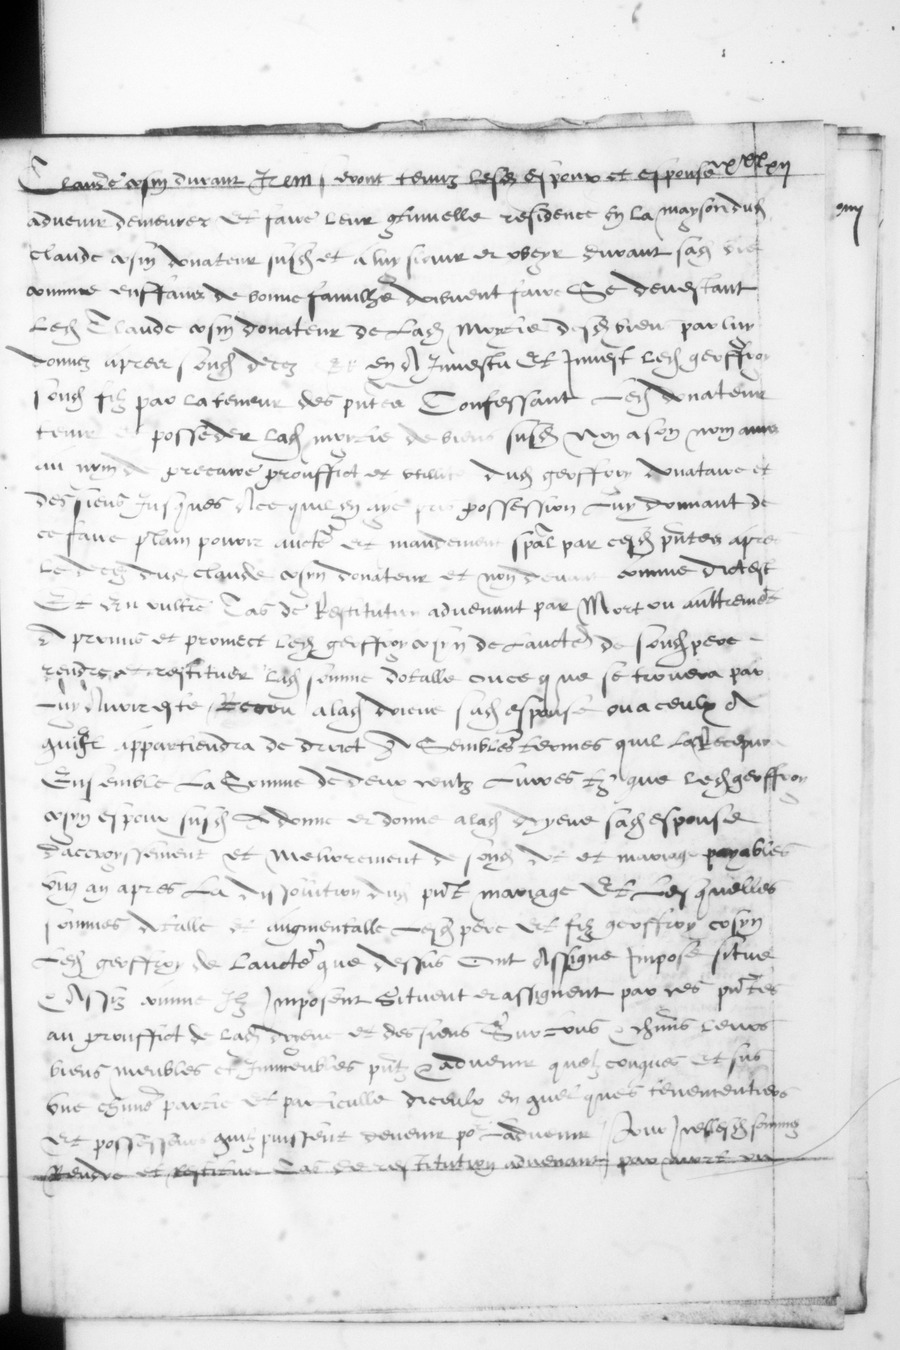 Claude cosin durant Item seront tenuz lesd espoux et espouse
advenir demeurer et faire leur residence en la mayson dud
Claude cosin donateur susd et a luy servir et obeyr durant sad vie
comme enffans de bonne famille doibvent faire Se devestant
Led Claude cosin donateur de Lad Moytie desd biens par luy
donnez apres sond decez et en A Investu et Invest Led geoffroy
sond filz par la teneur des pntes Confessant Led donateur
tenir et posseder Lad moytie de biens susd non a son nom ains
au nom de precaire prouffict et utilite dud geoffroy donataire et
des siens Jusques Ace quil en aye pris possession Luy donnant de
ce faire plain pouvoir aucte et mandement spal par cesd pntes apres
Le decez dud Claude cosin donateur et non devant comme dict est
Et En oultre Cas de Restitution advenant par Mort ou aultrement
A promis et promect Led geoffroy cosin de Laucte de sond pere
rendre et restituer lad somme dotalle ou ce que se trouvera par
Luy Avoir este Receu alad sad espouse ou a ceulx A
quil appartiendra de droict A Semblables termes quil Les Recepvra
Ensemble La Somme de deux centz Livres que Led geoffroy
cosin espoux susd A donne et donne alad sad espouse
daccroyssement et Meliorement de sond dot et mariage payables
ung an apres La dissolution dud pnt mariage Et Lesquelles
sommes dotalle et augmentalle Lesd pere et filz geoffroy cosyn
Led geoffroy de Laucte que dessus Ont Assigne Impose situe
Assiz comme Ilz Imposent Situent et assignent par ces pntes
au prouffict de lad et des siens Sur tous chuns leurs
biens meubles et Immeubles pntz advenir quelzconques et sus
une chune partie et particulle diceulx en quelques tenementiers
Et possesseurs quilz puissent devenir po Ladvenir Pour Icelles sommes
Rendre et Restituer Cas de restitution advenant par mort ou